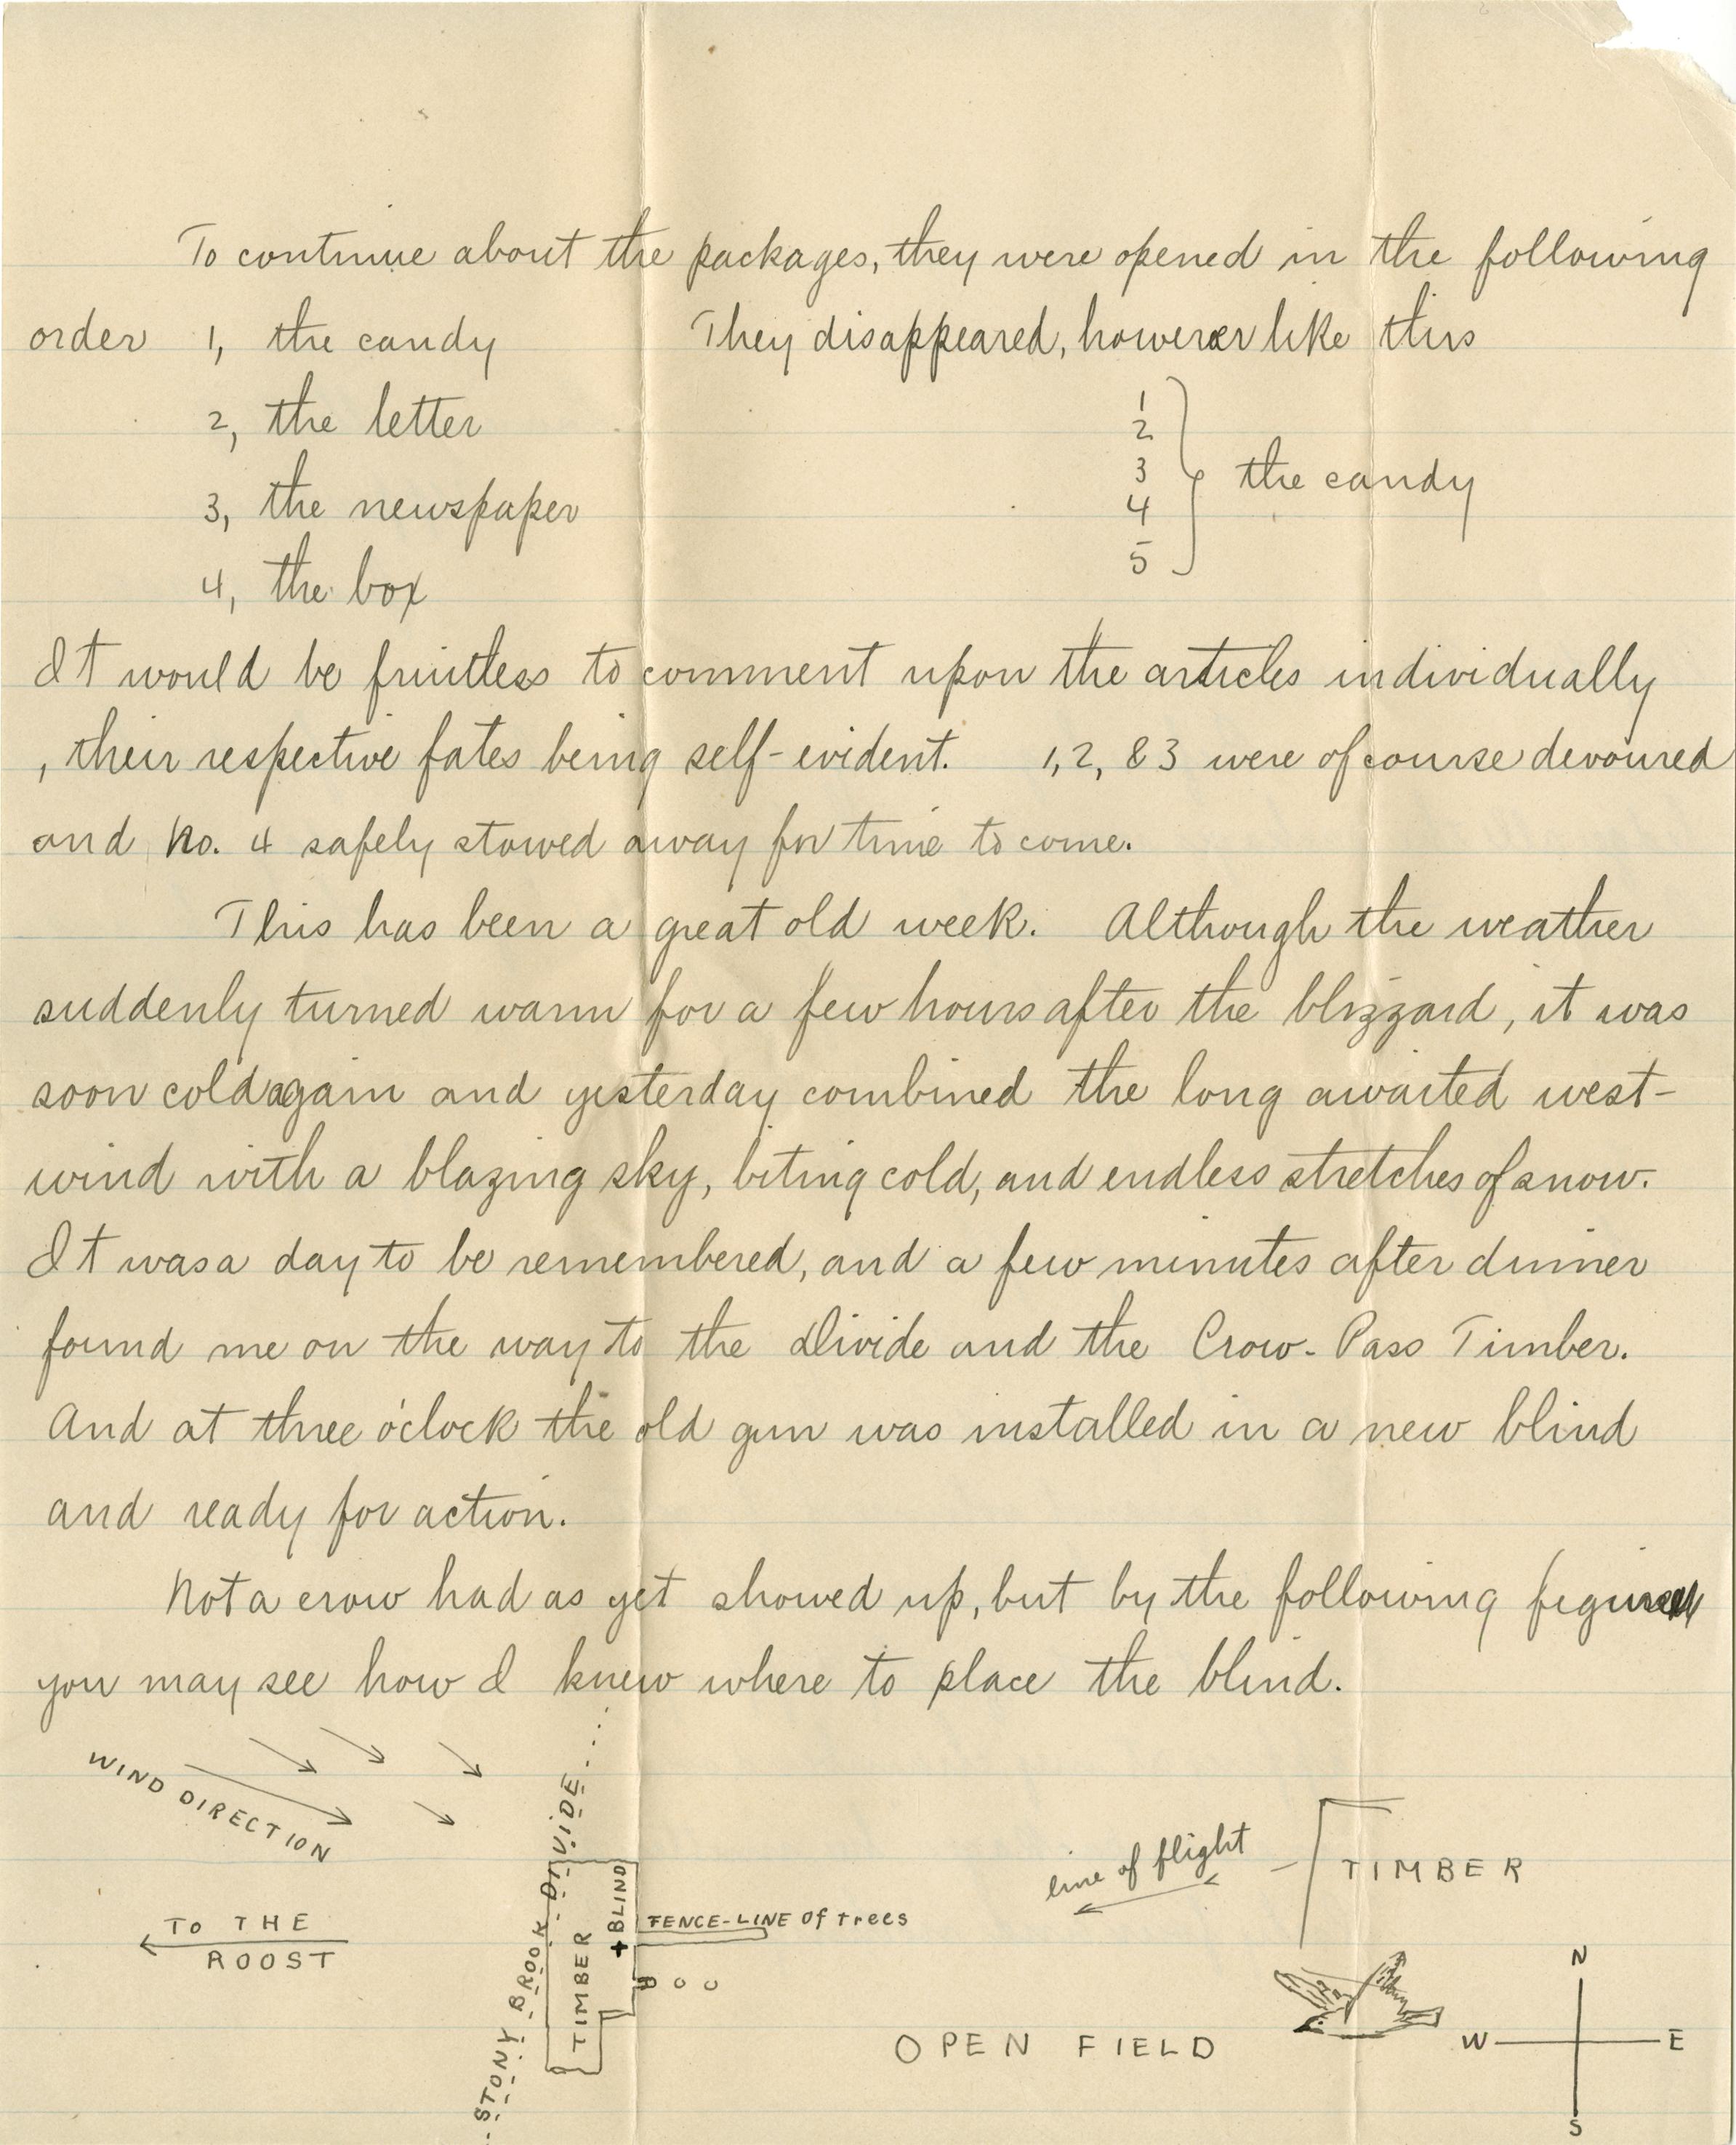 To continue about the packages, they were opened in the following
order 1, the candy They disappeared, however like this
2, the letter
3, the newspaper
4, the box
1
2
3
4
5
the candy
It would be fruitless to comment upon the articles individually
, their respective fates being self-evident. 1, 2, & 3 were of course devoured
and No. 4 safely stowed away for time to come.
This has been a great old week. Although the weather
suddenly turned warm for a few hours after the blizzard, it was
soon cold again and yesterday combined the long awaited west-
wind with a blazing sky, biting cold, and endless stretches of snow.
It was a day to be remembered, and a few minutes after dinner
found me on the way to the Divide and the Crow-Pass Timber.
And at three o'clock the old gun was installed in a new blind
and ready for action.
Not a crow had as yet showed up, but by the following figure
you may see how I knew where to place the blind.
WIND DIRECTION
TO THE
ROOST
STONY BROOK DIVIDE
TIMBER
BLIND
FENCE-LINE of trees
line of flight
TIMBER
OPEN FIELD
N
W E
S